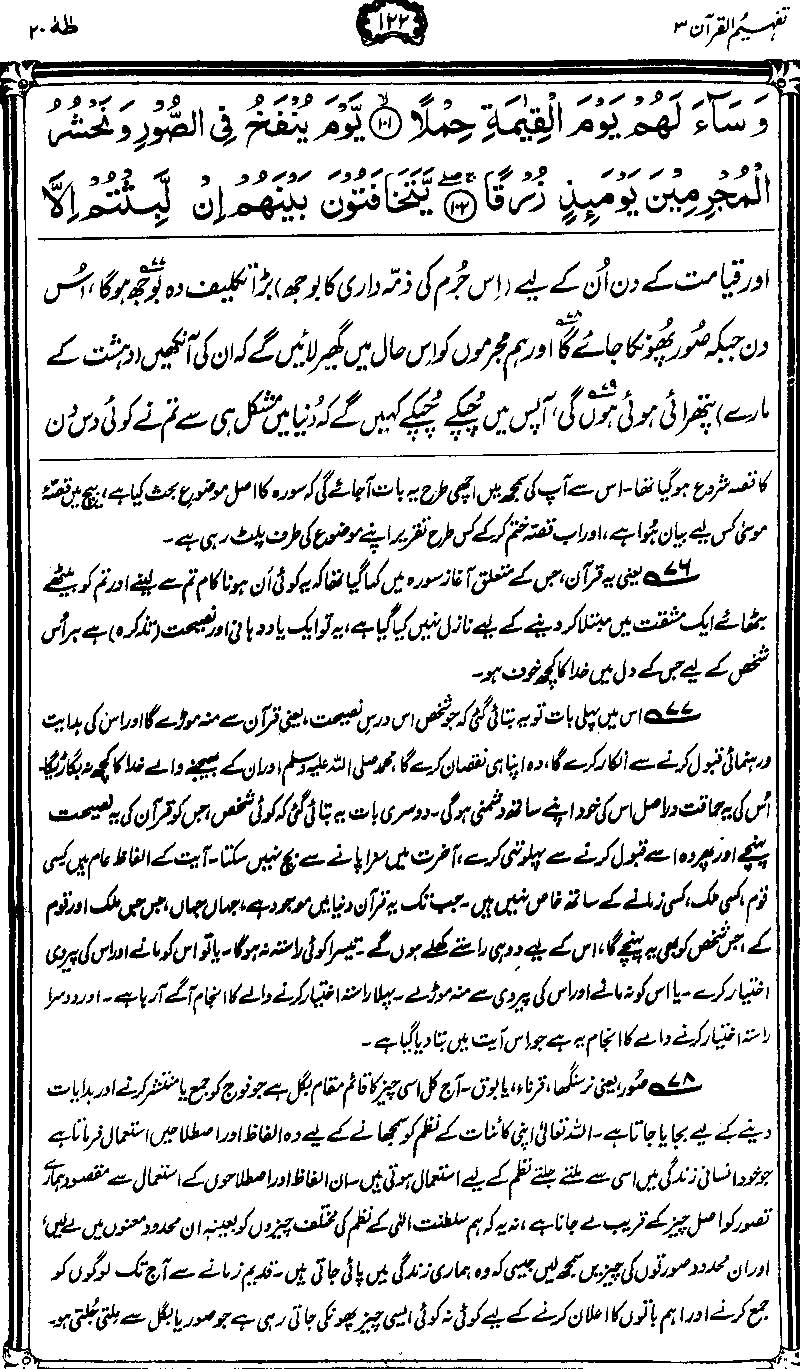 تفہیم القرآن ۳
۱۲۲
طٰہٰ ۲۰
وَسَآءَ لَهُمْ يَوْمَ الْقِيٰمَةِ حِمْلًا ﴿۱۰۱﴾ يَّوْمَ يُنْفَخُ فِى الصُّوْرِ وَنَحْشُرُ
الْمُجْرِمِيْنَ يَوْمَئِذٍ زُرْقًا ﴿۱۰۲﴾ يَّتَخَافَتُوْنَ بَيْنَهُمْ اِنْ لَّبِثْتُمْ اِلَّا
اور قیامت کے دن اُن کے لیے (اِس جُرم کی ذمّہ داری کا بوجھ) بڑا تکلیف دہ بوجھ ہوگا،۷۷ اُس
دن جبکہ صُور پھُونکا جائے گا۷۸ اور ہم مجرموں کو اِس حال میں گھیر لائیں گے کہ ان کی آنکھیں (دہشت کے
مارے) پتھرائی ہوئی ہوں گی،۷۹ آپس میں چُپکے چُپکے کہیں گے کہ دُنیا میں مشکل ہی سے تم نے کوئی دس دن
کا قصہ شروع ہوگیا تھا۔ اس سے آپ کی سمجھ میں اچھی طرح یہ بات آجائے گی کہ سورہ کا اصل موضوعِ بحث کیا ہے، بیچ میں قصّۂ
موسیٰ کس لیے بیان ہُوا ہے، اور اب قصّہ ختم کرکے کس طرح تقریر اپنے موضوع کی طرف پلٹ رہی ہے۔
۷۶ یعنی یہ قرآن، جس کے متعلق آغازِ سورہ میں کہا گیا تھا کہ یہ کوئی اَن ہونا کام تم سے لینے اور تم کو بیٹھے
بٹھائے ایک مشقت میں مبتلا کر دینے کے لیے نازل نہیں کیا گیا ہے، یہ تو ایک یاد دہانی اور نصیحت (تذکرہ) ہے ہر اُس
شخص کے لیے جس کے دل میں خدا کا کچھ خوف ہو۔
۷۷ اس میں پہلی بات تو یہ بتائی گئی کہ جو شخص اس درسِ نصیحت، یعنی قرآن سے منہ موڑے گا اور اس کی ہدایت
و رہنمائی قبول کرنے سے انکار کرے گا، وہ اپنا ہی نقصان کرے گا، محمد صلی اللہ علیہ وسلم اور ان کے بھیجنے والے خدا کا کچھ نہ بگاڑیگا
اُس کی یہ حماقت دراصل اس کی خود اپنے ساتھ دشمنی ہوگی۔ دوسری بات یہ بتائی گئی کہ کوئی شخص، جس کو قرآن کی یہ نصیحت
پہنچے اور پھر وہ اسے قبول کرنے سے پہلوتہی کرے، آخرت میں سزا پانے سے بچ نہیں سکتا۔ آیت کے الفاظ عام ہیں، کسی
قوم، کسی ملک، کسی زمانے کے ساتھ خاص نہیں ہیں۔ جب تک یہ قرآن دنیا میں موجود ہے، جہاں جہاں، جس جس ملک اور قوم
کے، جس شخص کو بھی یہ پہنچے گا، اس کے لیے دو ہی راستے کھلے ہوں گے۔ تیسرا کوئی راستہ نہ ہوگا۔ یا تو اس کو مانے اور اس کی پیروی
اختیار کرے۔ یا اس کو نہ مانے اور اس کی پیروی سے منہ موڑ لے۔ پہلا راستہ اختیار کرنے والے کا انجام آگے آرہا ہے۔ اور دوسرا
راستہ اختیار کرنے والے کا انجام یہ ہے جو اِس آیت میں بتا دیا گیا ہے۔
۷۸ صُور، یعنی نرسنگھا، قرناء، یا بوق۔ آج کل اسی چیز کا قائم مقام بگل ہے جو فوج کو جمع یا منتشر کرنے اور ہدایات
دینے کے لیے بجایا جاتا ہے۔ اللہ تعالیٰ اپنی کائنات کے نظم کو سمجھانے کے لیے وہ الفاظ اور اصطلاحیں استعمال فرماتا ہے
جو خود انسانی زندگی میں اسی سے ملتے جلتے نظم کے لیے استعمال ہوتی ہیں۔ ان الفاظ اور اصطلاحوں کے استعمال سے مقصود ہمارے
تصور کو اصل چیز کے قریب لے جانا ہے، نہ یہ کہ ہم سلطنت الٰہی کے نظم کی مختلف چیزوں کو بعینہٖ ان محدود معنوں میں لے لیں،
اور ان محدود صورتوں کی چیزیں سمجھ لیں جیسی کہ وہ ہماری زندگی میں پائی جاتی ہیں۔ قدیم زمانے سے آج تک لوگوں کو
جمع کرنے اور اہم باتوں کا اعلان کرنے کے لیے کوئی نہ کوئی ایسی چیز پھونکی جاتی رہی ہے جو صور یا بگل سے ملتی جُلتی ہو۔